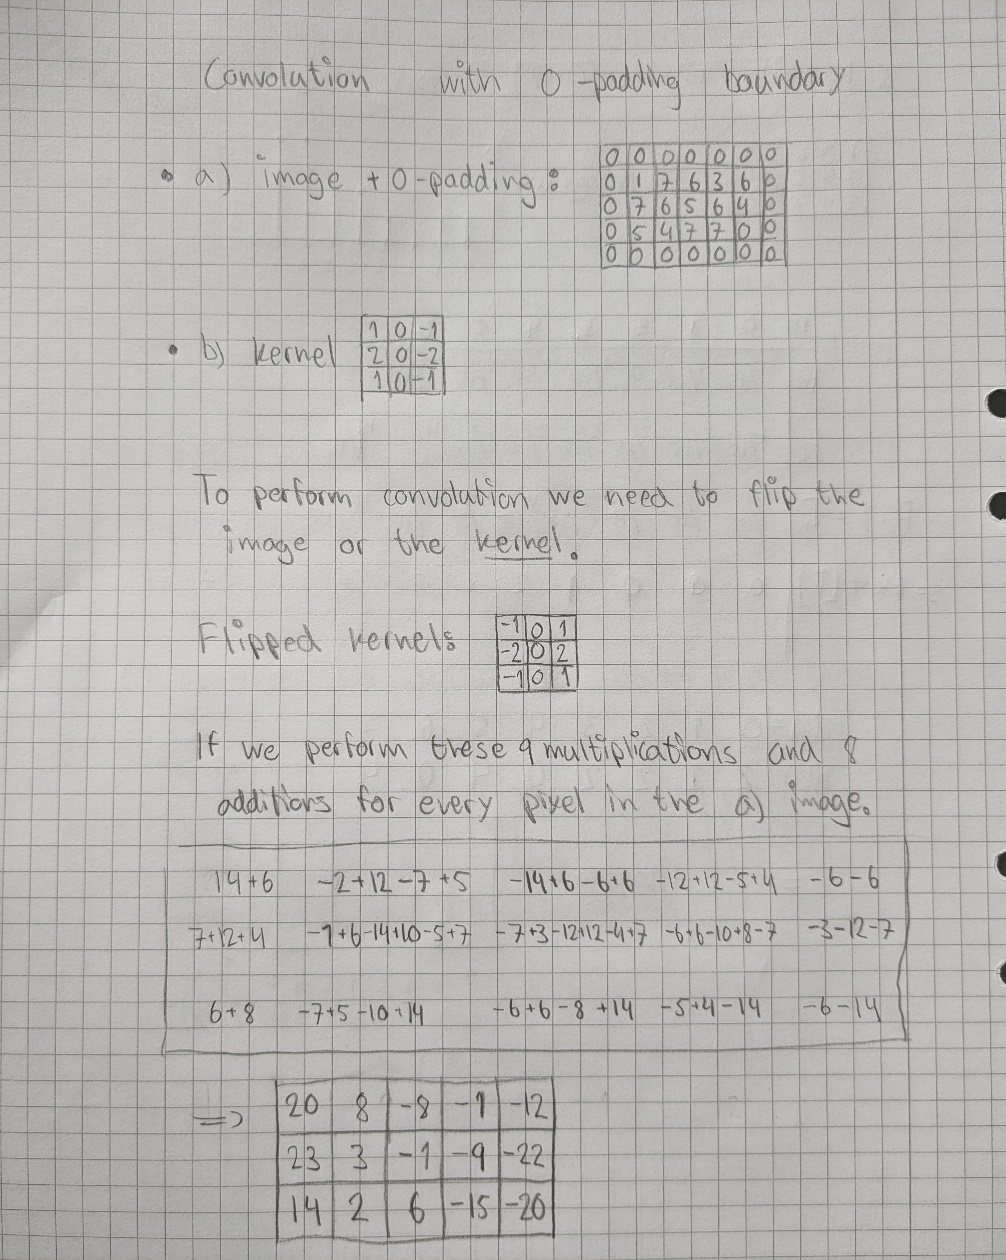 Convolution with 0-padding boundary
• a) image + 0-padding:
0 0 0 0 0 0 0
0 1 7 6 3 6 0
0 7 6 5 6 4 0
0 5 4 7 7 0 0
0 0 0 0 0 0 0
• b) kernel
1 0 -1
2 0 -2
1 0 -1
To perform convolution we need to flip the
image or the kernel.
Flipped kernel:
-1 0 1
-2 0 2
-1 0 1
If we perform these 9 multiplications and 8
additions for every pixel in the a) image.
14+6 -2+12-7+5 -14+6-6+6 -12+12-5+4 -6-6
7+12+4 -1+6-14+10-5+7 -7+3-12+12-4+7 -6+6-10+8-7 -3-12-7
6+8 -7+5-10+14 -6+6-8+14 -5+4-14 -6-14
=> 20 8 -8 -1 -12
23 3 -1 -9 -22
14 2 6 -15 -20